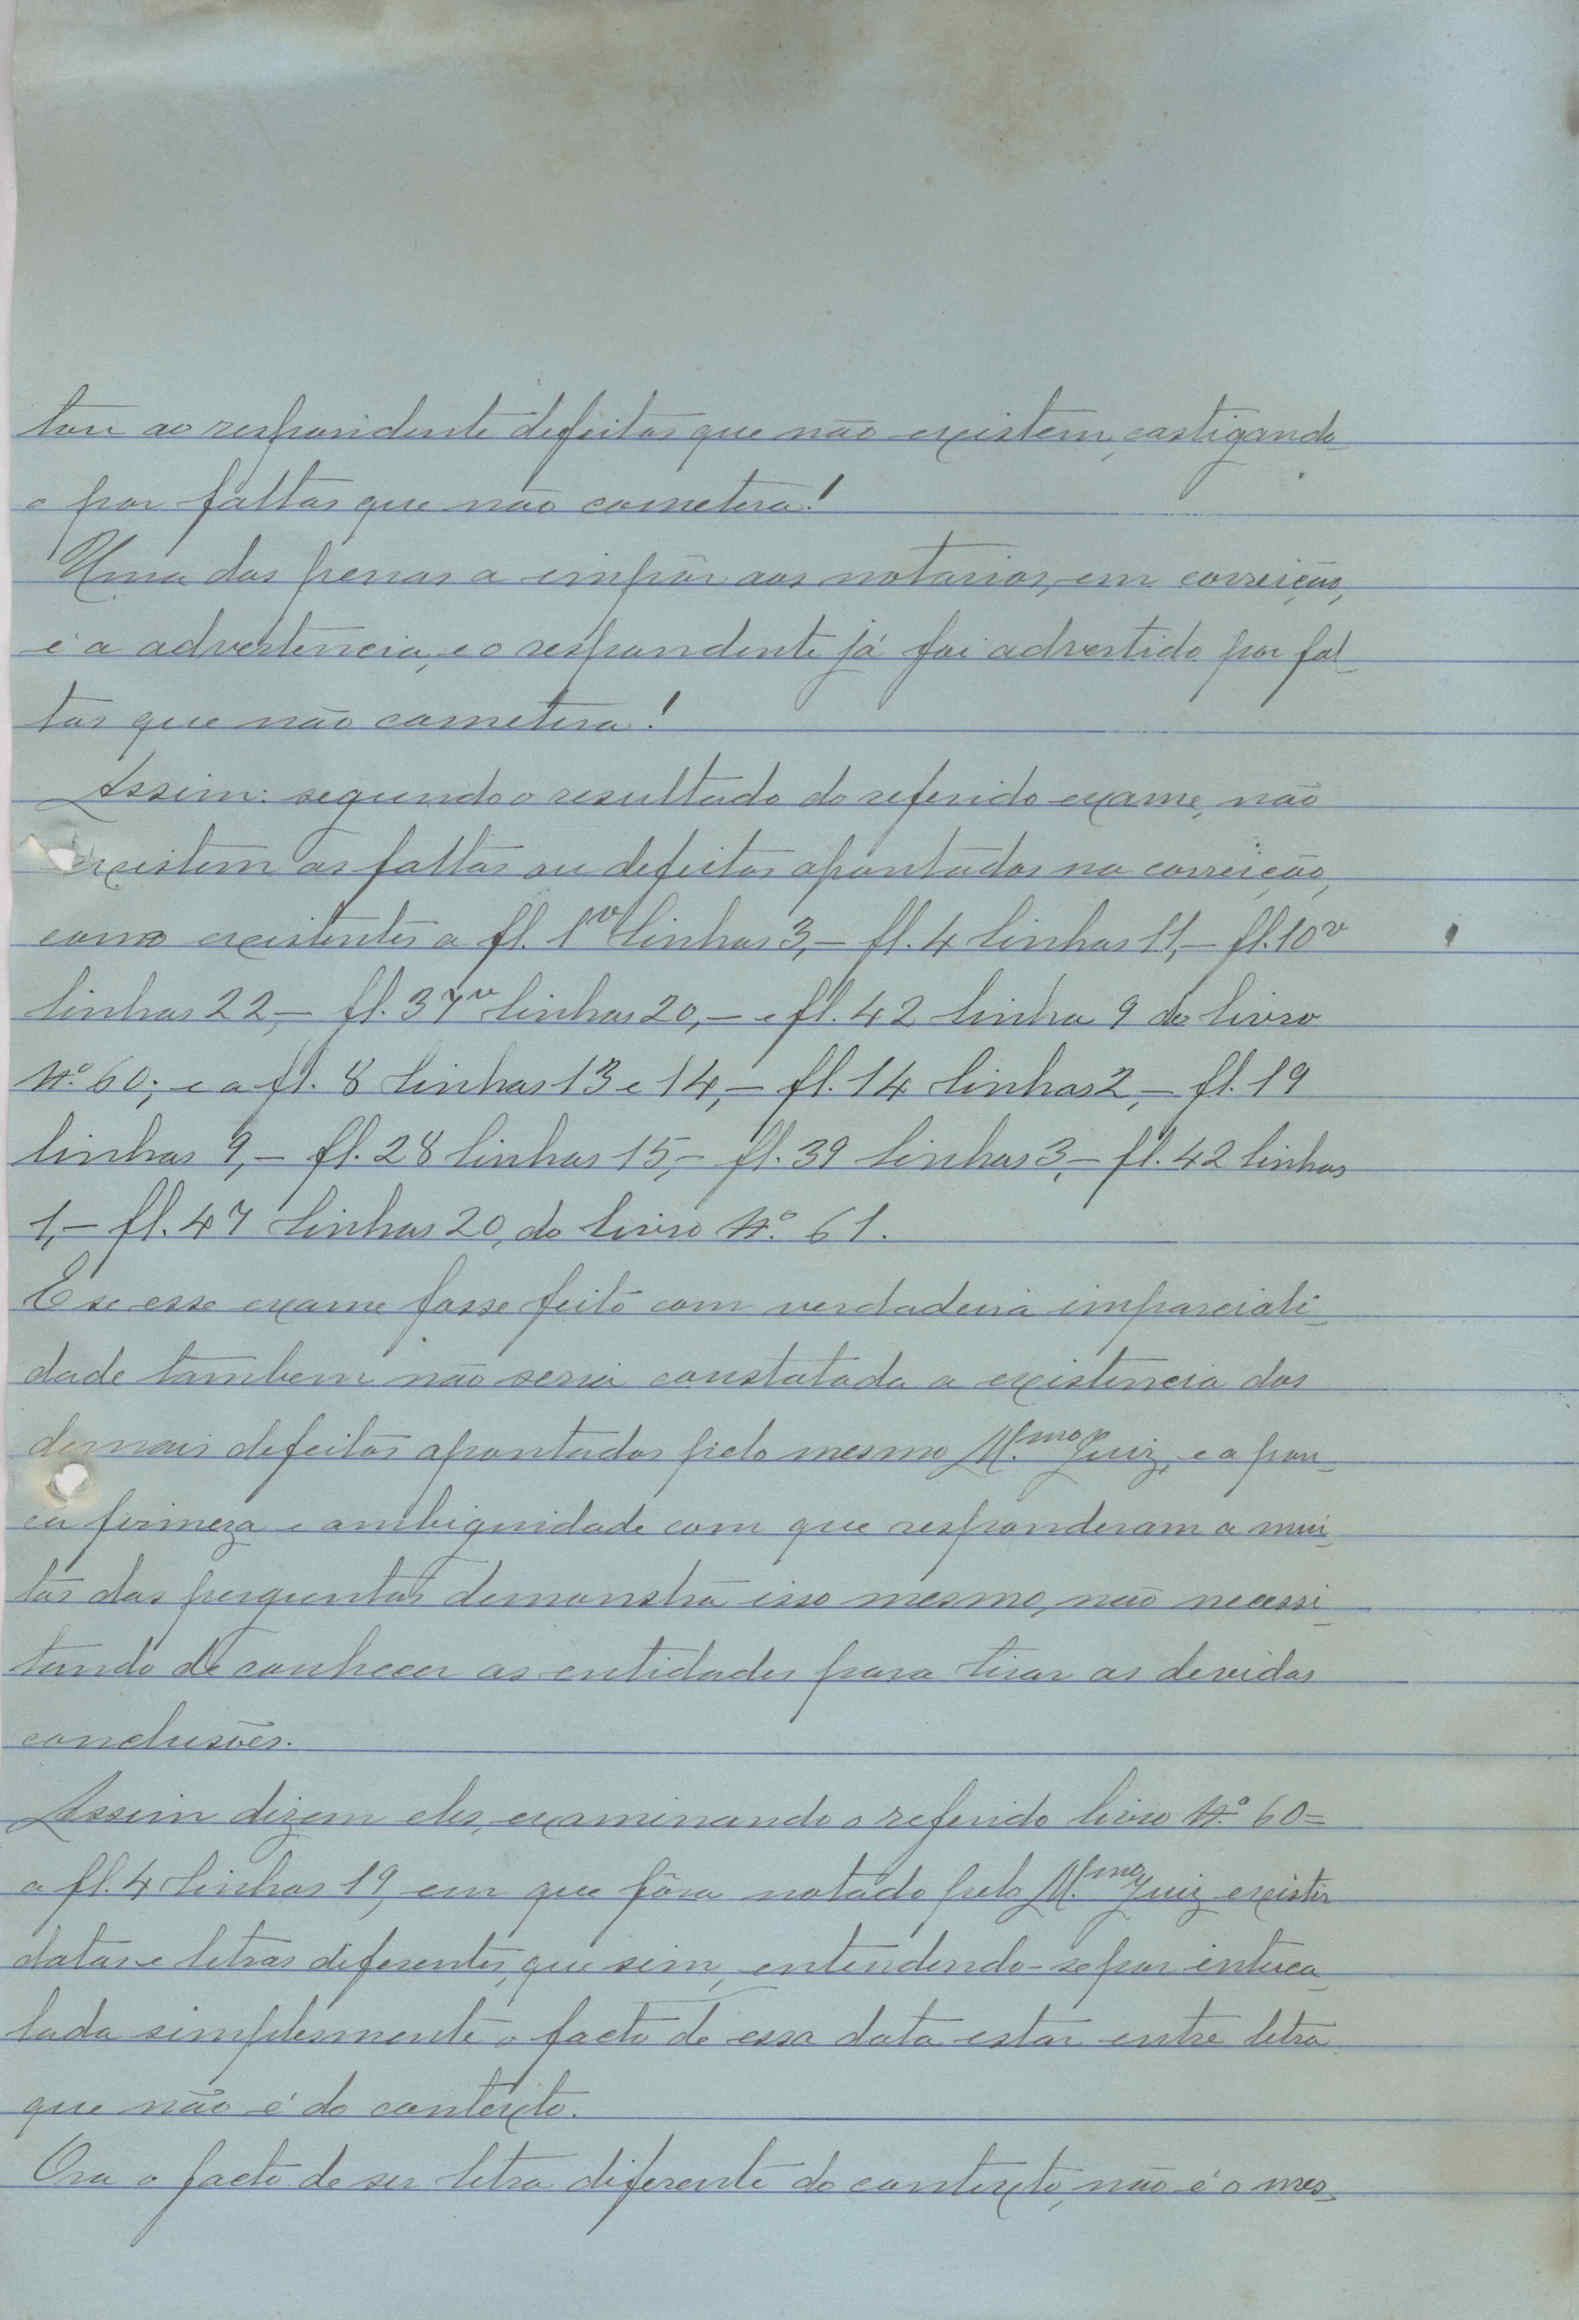 tou ao respondente defeitos que não existem, castigando-
o por faltas que não cometera!
Uma das penas a impôr aos notarios, em correição,
é a advertencia, e o respondente já foi advertido por fal-
tas que não cometera!
Assim: segundo o resultado do referido exame, não
existem as faltas ou defeitos apontados na correição,
como existentes a fl. 1v linhas 3,- fl. 4 linhas 11,- fl. 10v
linhas 22,- fl. 37v linhas 20,- e fl. 42 linha 9 do livro
Nº. 60; e a fl. 8 linhas 13 e 14,- fl. 14 linhas 2,- fl. 19
linhas 9,- fl. 28 linhas 15,- fl. 39 linhas 3,- fl. 42 linhas
1,- fl. 47 linhas 20, do livro Nº. 61.
E se esse exame fosse feito com verdadeira imparciali-
dade tambem não seria constatada a existencia dos
demais defeitos apontados pelo mesmo M.mo Juiz, e a pou-
ca firmeza e ambiguidade com que responderam a mui-
tas das perguntas demonstra isso mesmo, não necessi-
tando de conhecer as entidades para tirar as devidas
conclusões.
Assim dizem eles, examinando o referido livro Nº. 60=
a fl. 4 linhas 19, em que fôra notado pelo M.mo Juiz existir
datas e letras diferentes, que sim, entendendo-se por interca-
lada simplesmente o facto de essa data estar entre letra
que não é do contexto.
Ora o facto de ser letra diferente do contexto, não é o mes-